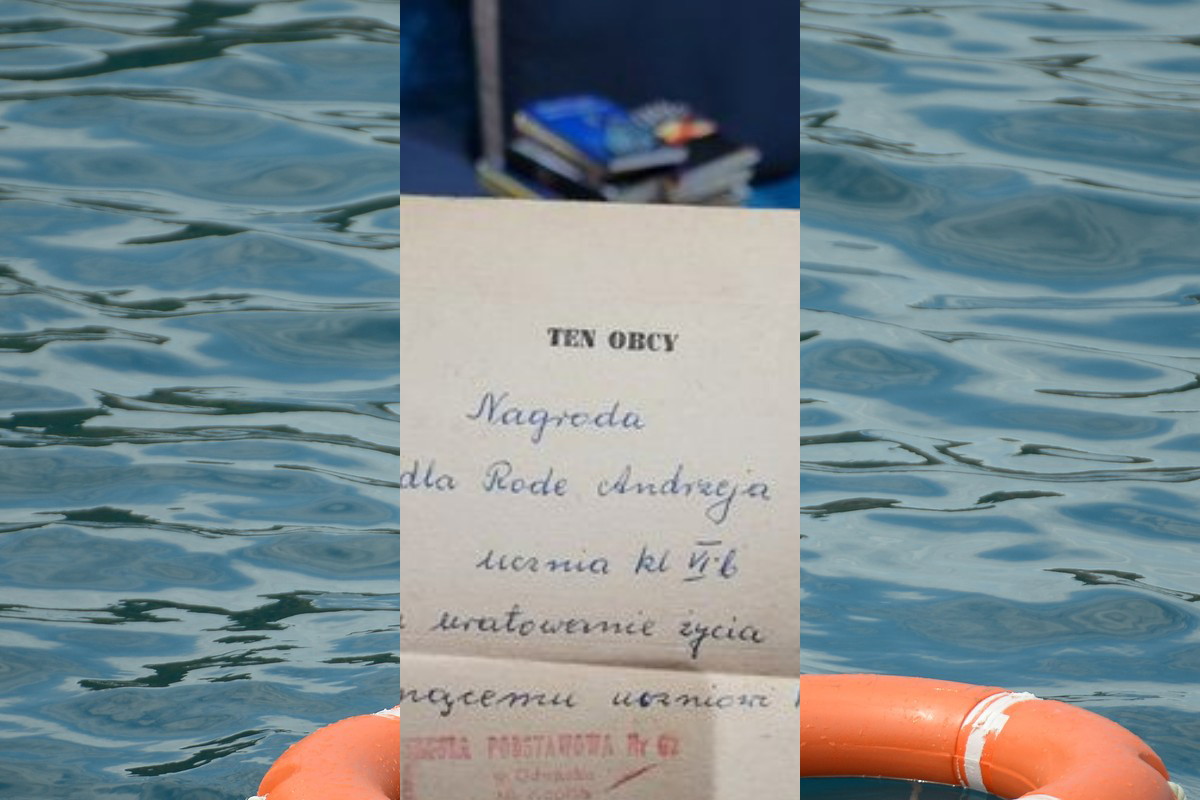 TEN OBCY
Nagroda
dla Rode Andrzeja
ucznia kl VI b
uratowanie życia
nącemu uczniowi
PODSTAWOWA Nr 62
w Gdańsku